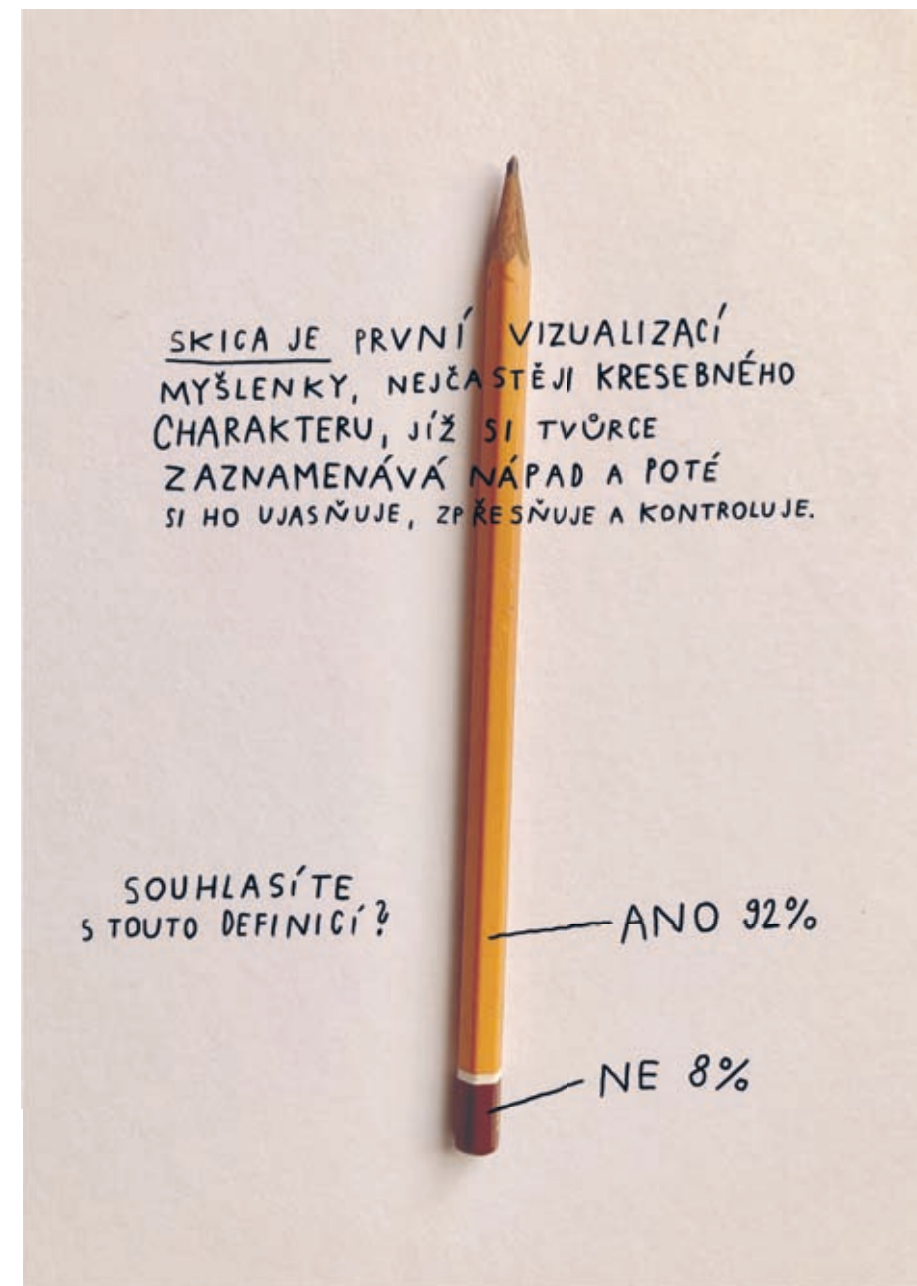 SKICA JE PRVNÍ VIZUALIZACÍ
MYŠLENKY, NEJČASTĚJI KRESEBNÉHO
CHARAKTERU, JÍŽ SI TVŮRCE
ZAZNAMENÁVÁ NÁPAD A POTÉ
SI HO UJASŇUJE, ZPŘESŇUJE A KONTROLUJE.
SOUHLASÍTE
S TOUTO DEFINICÍ?
ANO 92%
NE 8%